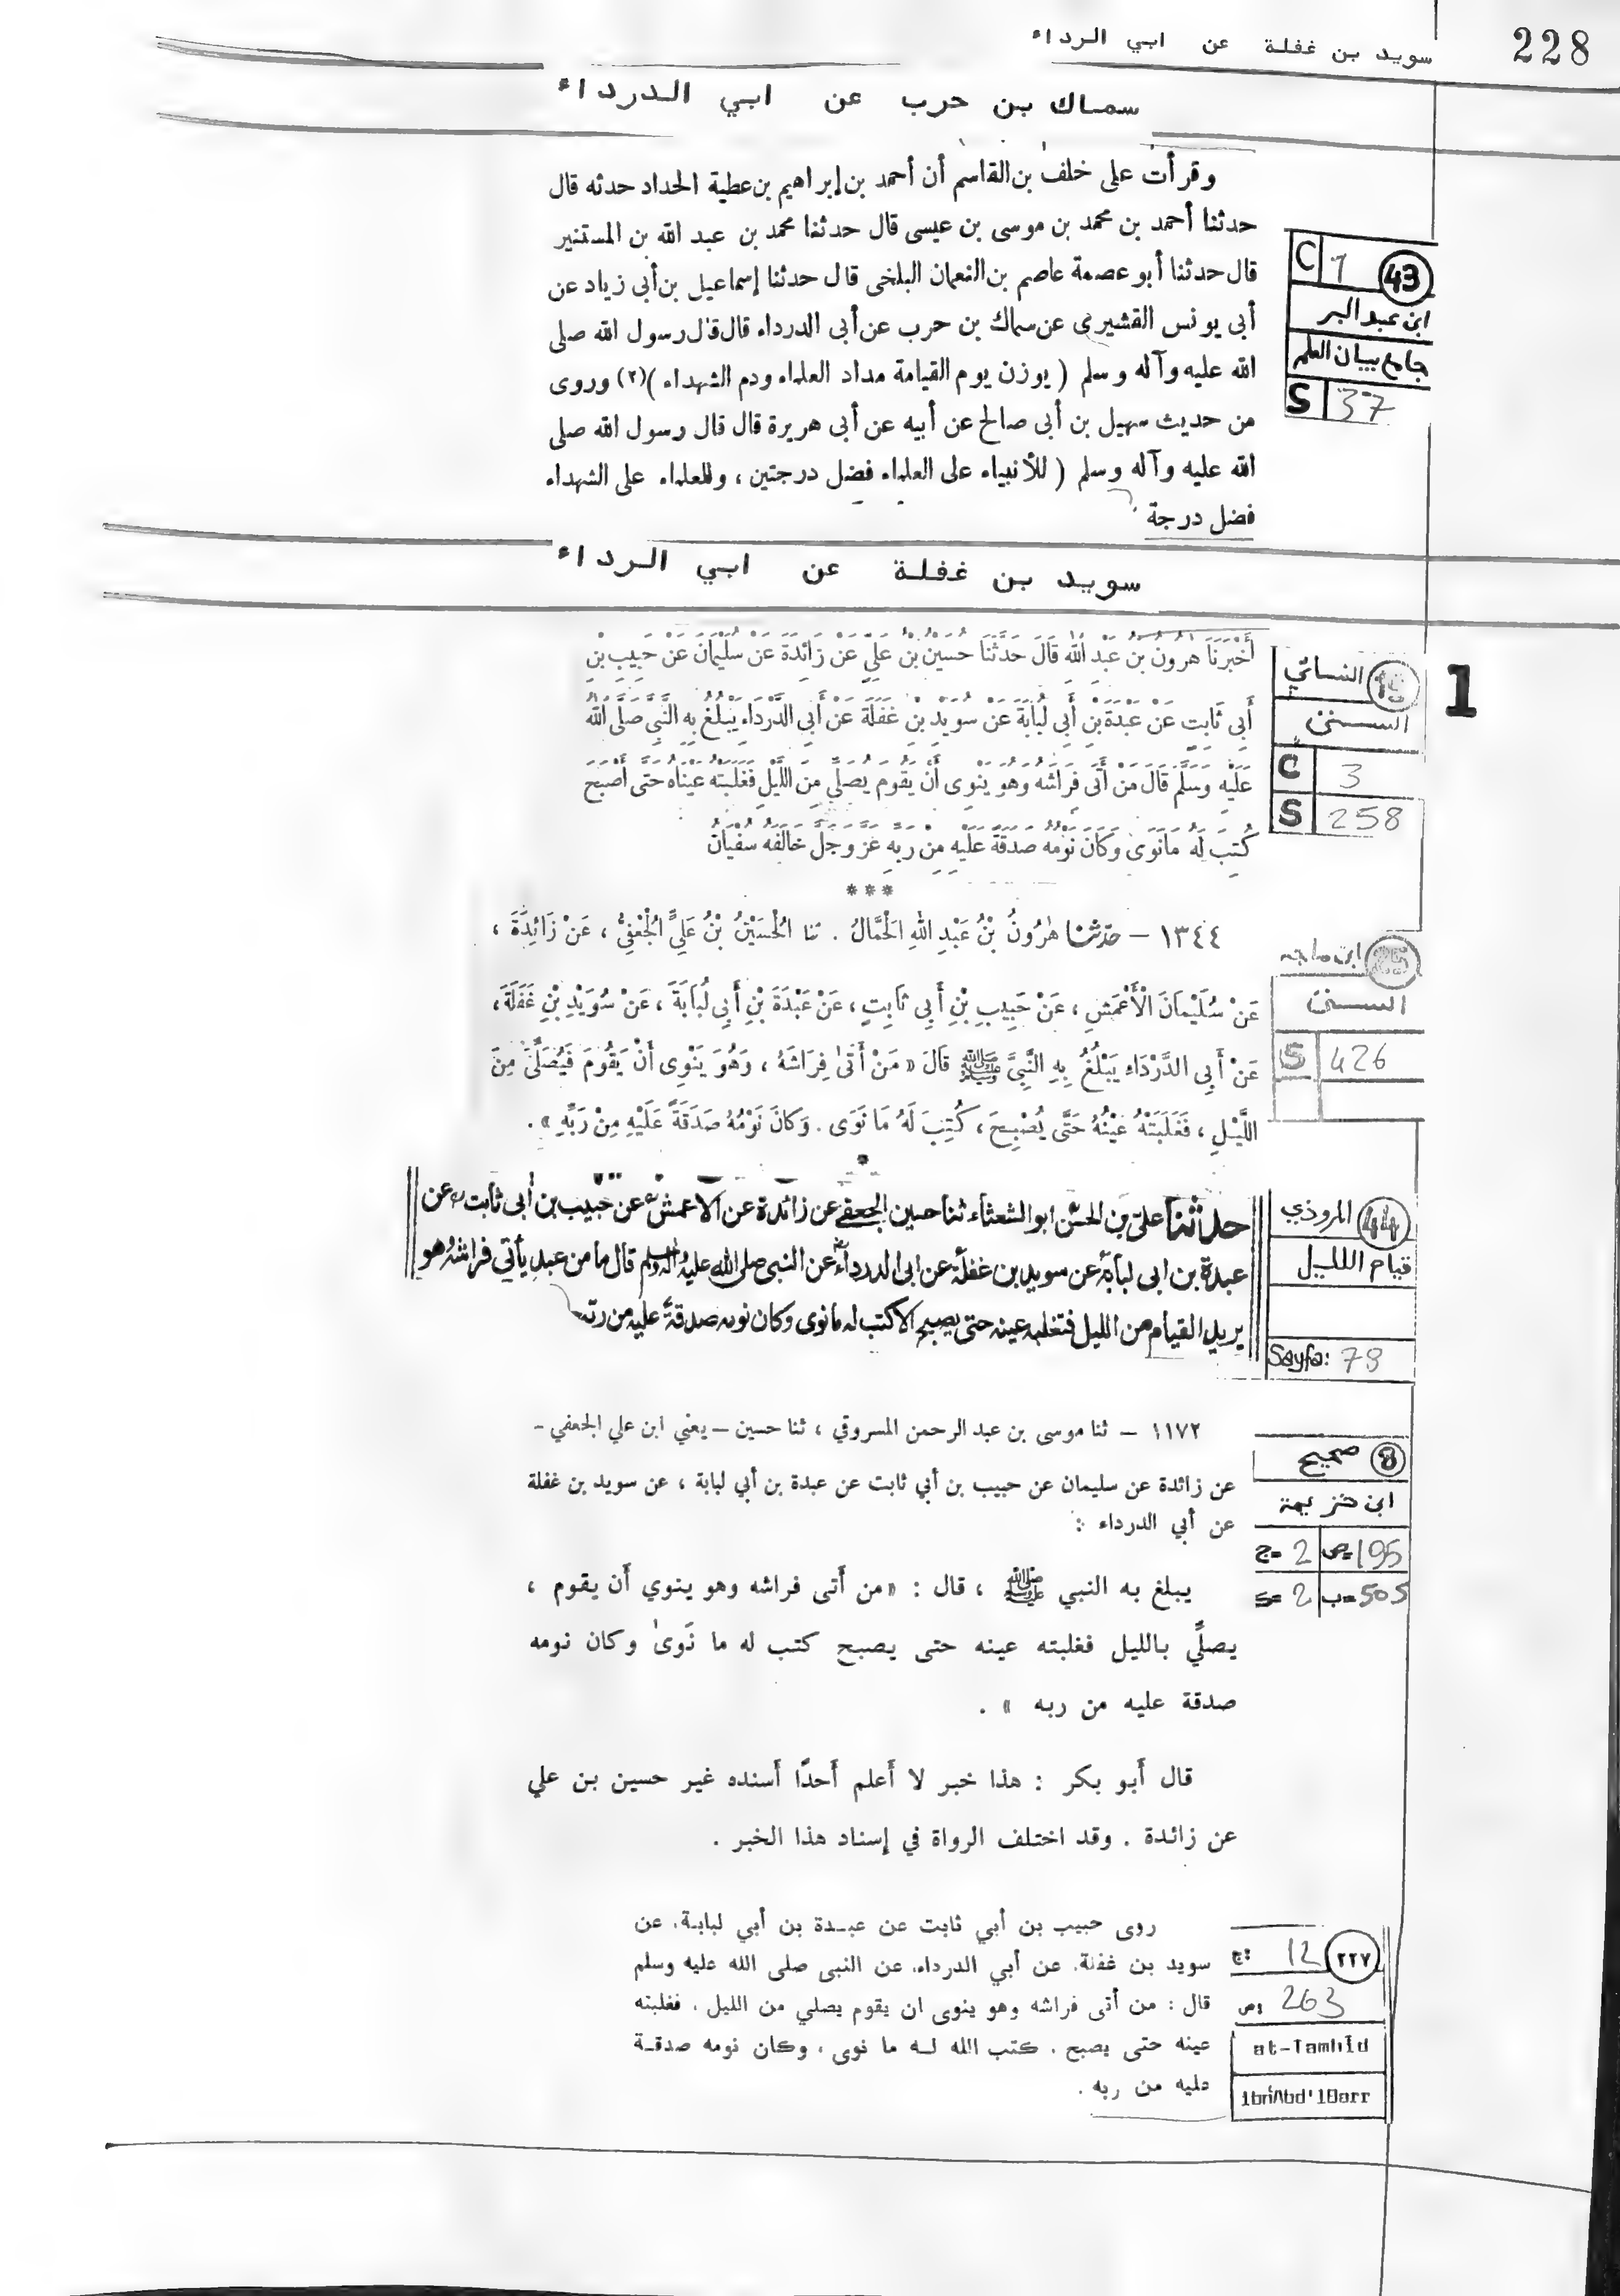 228
سويد بن غفلة عن ابي الرداء
سماك بن حرب عن ابي الدرداء
وقرأت على خلف بن القاسم أن أحمد بن إبراهيم بن عطية الحداد حدثه قال
حدثنا أحمد بن محمد بن موسى بن عيسى قال حدثنا محمد بن عبد الله بن المستنير
قال حدثنا أبو عصمة عاصم بن النعمان البلخى قال حدثنا إسماعيل بن أبى زياد عن
أبى يونس القشيرى عن سماك بن حرب عن أبى الدرداء قال قال رسول الله صلى
الله عليه وآله وسلم ( يوزن يوم القيامة مداد العلماء ودم الشهداء )(٢) وروى
من حديث سهيل بن أبى صالح عن أبيه عن أبى هريرة قال قال رسول الله صلى
الله عليه وآله وسلم ( للأنبياء على العلماء فضل درجتين ، وللعلماء على الشهداء
فضل درجة
43
C 1
ابن عبد البر
جامع بيان العلم
S 37
سويد بن غفلة عن ابي الرداء
أَخْبَرَنَا هٰرُونُ بْنُ عَبْدِ اللّٰهِ قَالَ حَدَّثَنَا حُسَيْنُ بْنُ عَلِيٍّ عَنْ زَائِدَةَ عَنْ سُلَيْمَانَ عَنْ حَبِيبِ بْنِ
أَبِي ثَابِتٍ عَنْ عَبْدَةَ بْنِ أَبِي لُبَابَةَ عَنْ سُوَيْدِ بْنِ غَفَلَةَ عَنْ أَبِي الدَّرْدَاءِ يَبْلُغُ بِهِ النَّبِيَّ صَلَّى اللّٰهُ
عَلَيْهِ وَسَلَّمَ قَالَ مَنْ أَتَى فِرَاشَهُ وَهُوَ يَنْوِى أَنْ يَقُومَ يُصَلِّيَ مِنَ اللَّيْلِ فَغَلَبَتْهُ عَيْنَاهُ حَتَّى أَصْبَحَ
كُتِبَ لَهُ مَانَوَى وَكَانَ نَوْمُهُ صَدَقَةً عَلَيْهِ مِنْ رَبِّهِ عَزَّ وَجَلَّ خَالَفَهُ سُفْيَانُ
19 النسائي
السنن
C 3
S 258
1
***
١٣٤٤ — حدّثنا هٰرُونُ بْنُ عَبْدِ اللهِ الْحَمَّالُ . ثنا الْحُسَيْنُ بْنُ عَلِيٍّ الْجُعْفِيُّ ، عَنْ زَائِدَةَ ،
عَنْ سُلَيْمَانَ الْأَعْمَشِ ، عَنْ حَبِيبِ بْنِ أَبِي ثَابِتٍ ، عَنْ عَبْدَةَ بْنِ أَبِي لُبَابَةَ ، عَنْ سُوَيْدِ بْنِ غَفَلَةَ ،
عَنْ أَبِي الدَّرْدَاءِ يَبْلُغُ بِهِ النَّبِيَّ ﷺ قَالَ « مَنْ أَتَىٰ فِرَاشَهُ ، وَهُوَ يَنْوِى أَنْ يَقُومَ فَيُصَلِّيَ مِنَ
اللَّيْلِ ، فَغَلَبَتْهُ عَيْنُهُ حَتَّى يُصْبِحَ ، كُتِبَ لَهُ مَا نَوَى . وَكَانَ نَوْمُهُ صَدَقَةً عَلَيْهِ مِنْ رَبِّهِ » .
25 ابن ماجه
السنن
S 426
حدثنا علي بن الحسن ابو الشعثاء ثنا حسين الجعفي عن زائدة عن الاعمش عن حبيب بن أبى ثابت عن
عبدة بن ابى لبابة عن سويد بن غفلة عن ابى الدرداء عن النبى صلى الله عليه وآله وسلم قال ما من عبد يأتى فراشه وهو
يريد القيام من الليل فتغلبه عينه حتى يصبح الا كتب له ما نوى وكان نومه صدقة عليه من ربه
44 المروذي
قيام الليل
Sayfa: 78
١١٧٢ — ثنا موسى بن عبد الرحمن المسروقي ، ثنا حسين — يعني ابن علي الجعفي -
عن زائدة عن سليمان عن حبيب بن أبي ثابت عن عبدة بن أبي لبابة ، عن سويد بن غفلة
عن أبي الدرداء :
يبلغ به النبي ﷺ ، قال : «من أَتى فراشه وهو ينوي أَن يقوم ،
يصلِّي بالليل فغلبته عينه حتى يصبح كتب له ما نَوىٰ وكان نومه
صدقة عليه من ربه » .
قال أَبو بكر : هذا خبر لا أَعلم أَحدًا أَسنده غير حسين بن علي
عن زائدة . وقد اختلف الرواة في إسناد هذا الخبر .
8 صحيح
ابن خزيمة
ج= 2 ص= 195
s= 2 ب= 505
روى حبيب بن أبي ثابت عن عبدة بن أبي لبابة، عن
سويد بن غفلة، عن أبي الدرداء، عن النبى صلى الله عليه وسلم
قال : من أتى فراشه وهو ينوى ان يقوم يصلي من الليل ، فغلبته
عينه حتى يصبح ، كتب الله له ما نوى ، وكان نومه صدقة
عليه من ربه .
٢٢٧
ج: 12
ص: 263
at-Tamhîd
ibn Abd'lBarr